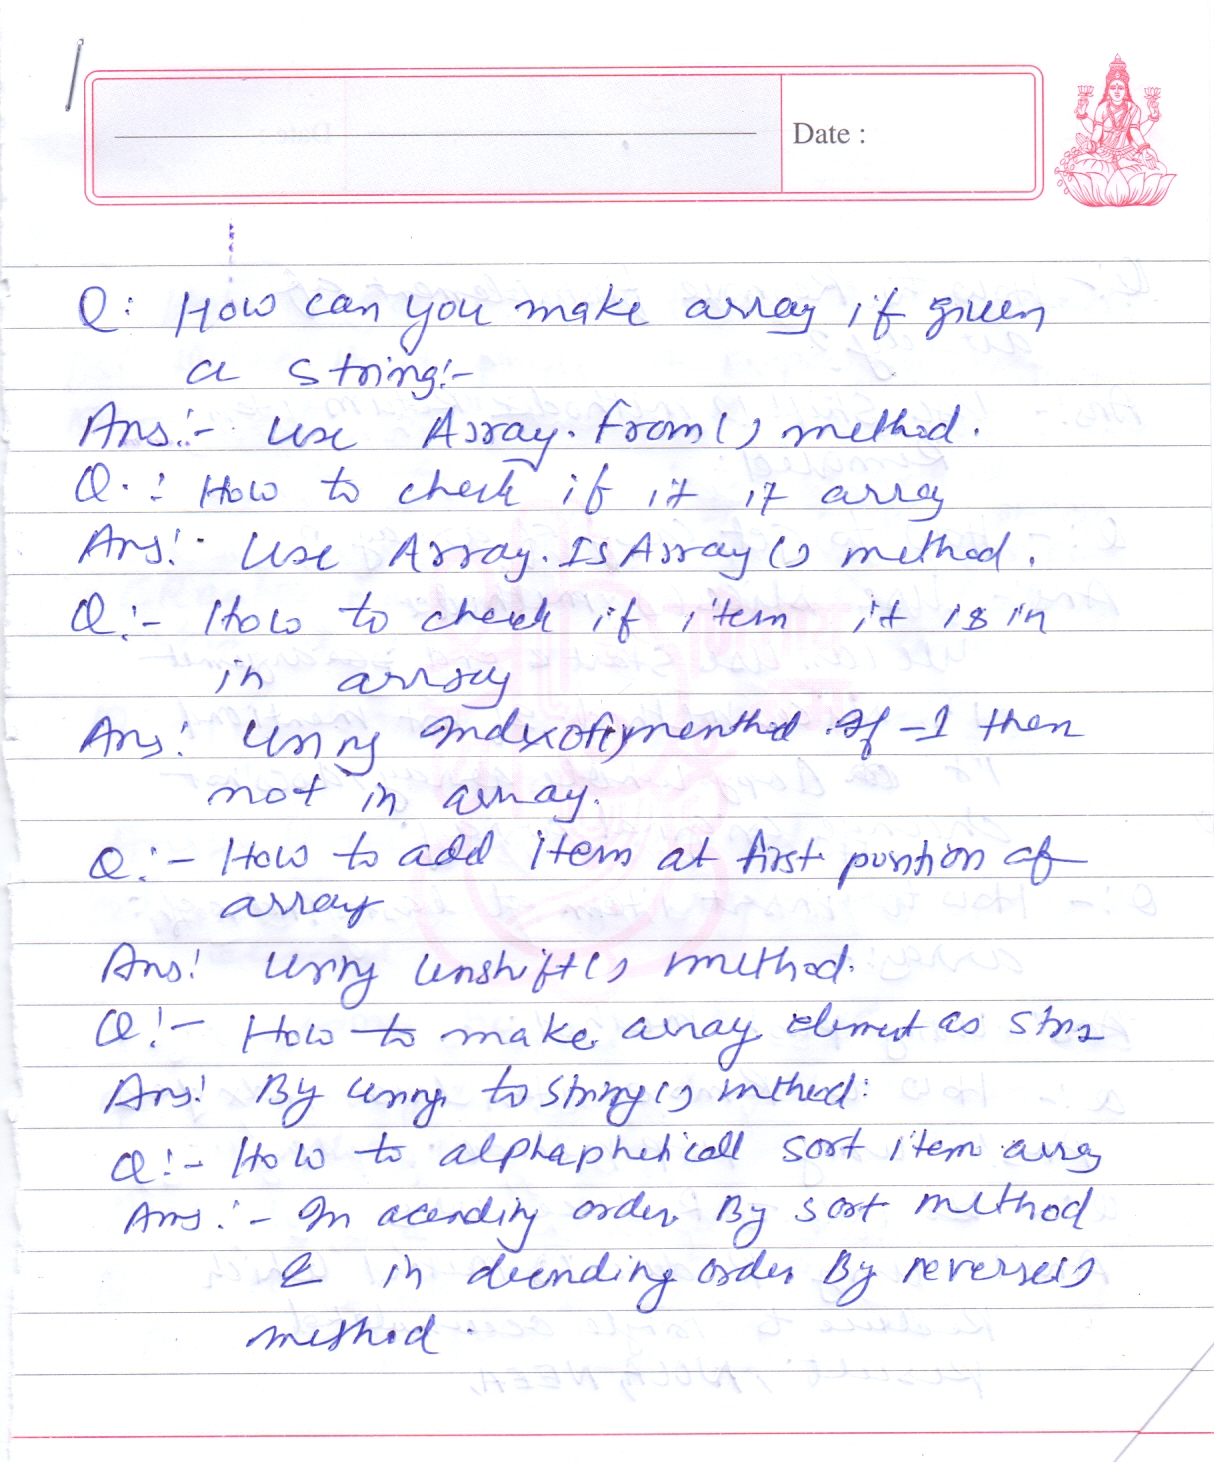 Date :
Q: How can you make array if given
a string:-
Ans:- Use Array.from() method.
Q.: How to check if it it array
Ans:- Use Array.IsArray() method.
Q:- How to check if item it is in
in array
Ans: Using Indexof() menthod. If -1 then
not in array.
Q:- How to add item at first position of
array
Ans: Using unshift() method.
Q:- How to make array element as string
Ans: By using toString() method:
Q:- How to alphapheticall sort item array
Ans:- In acending order By sort method
& in decending order By reverse()
method.